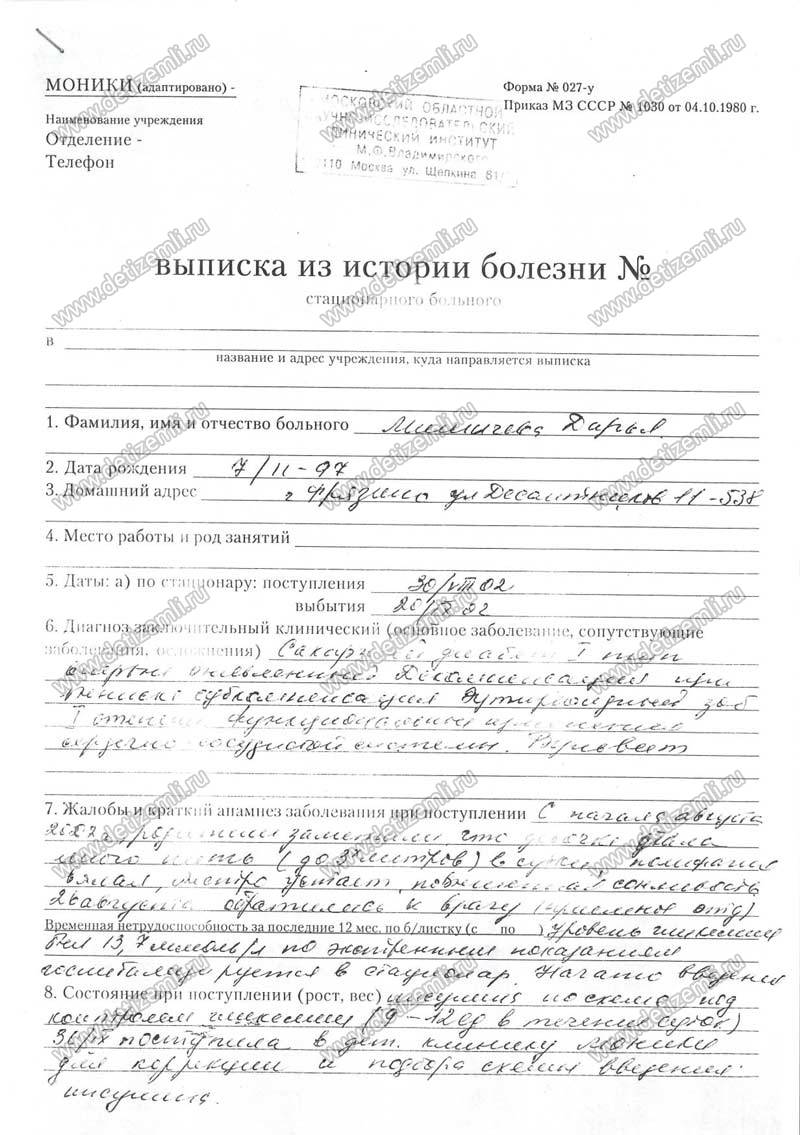 МОНИКИ (адаптировано) -
Наименование учреждения
Отделение -
Телефон
МОСКОВСКИЙ ОБЛАСТНОЙ
НАУЧНО-ИССЛЕДОВАТЕЛЬСКИЙ
КЛИНИЧЕСКИЙ ИНСТИТУТ
М.Ф.Владимирского
Москва ул. Щепкина 61/
Форма № 027-у
Приказ МЗ СССР № 1030 от 04.10.1980 г.
выписка из истории болезни №
стационарного больного
в
название и адрес учреждения, куда направляется выписка
1. Фамилия, имя и отчество больного Дарья
2. Дата рождения 7/II-97
3. Домашний адрес г Фрязино ул Десантников 11-538
4. Место работы и род занятий
5. Даты: а) по стационару: поступления 30/VIII 02
выбытия 20/IX 02
6. Диагноз заключительный клинический (основное заболевание, сопутствующие
заболевания, осложнения) Сахарный диабет I тип
впервые выявленный Декомпенсация при
выписке субкомпенсация Эутиреоидный зоб
I степени функциональные изменения
сердечно-сосудистой системы.
7. Жалобы и краткий анамнез заболевания при поступлении С начала августа
2002г родители заметили что девочка стала
много пить (до 3х литров) в сутки, полифагия
вялая, быстро устает, повышенная сонливость
26 августа обратились к врачу
Временная нетрудоспособность за последние 12 мес. по б/листку (с по ) уровень гликемии
был 13,7 ммоль/л по экстренным показаниям
госпитализируется в стационар. Начато введение
8. Состояние при поступлении (рост, вес) инсулина по схеме под
контролем гликемии (9-12ед в течение суток)
поступила в дет. клинику Моники
для коррекции и подбора схемы введения
инсулина.
www.detizemli.ru